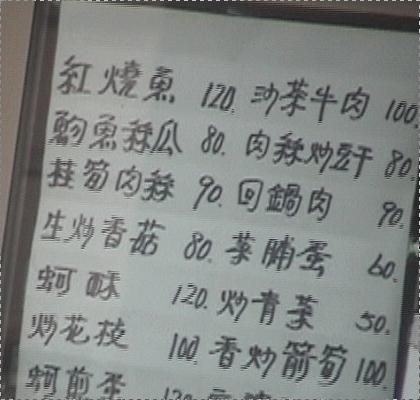 紅燒魚 120. 沙茶牛肉 100.
魩魚絲瓜 80. 肉絲炒豆干 80.
桂筍肉絲 90. 回鍋肉 90.
生炒香菇 80. 菜脯蛋 60.
蚵酥 120. 炒青菜 50.
炒花枝 100. 香炒箭筍 100.
蚵煎蛋 120.